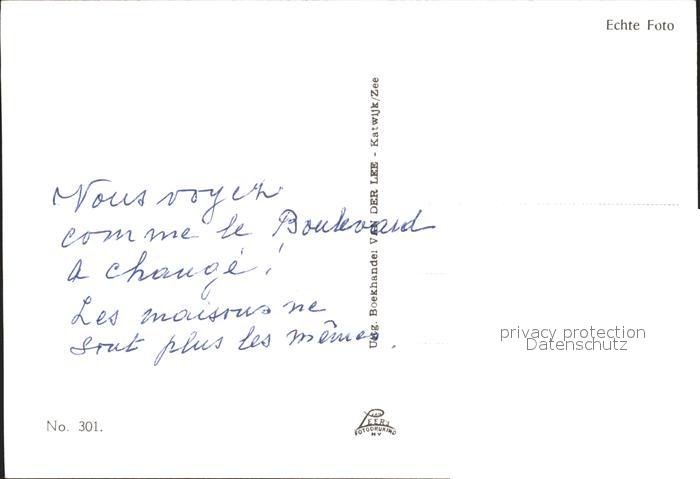 Echte Foto
Uitg. Boekhandel VAN DER LEE - Katwijk/Zee
Vous voyez
comme le Boulevard
a changé!
Les maisons ne
sont plus les mêmes.
privacy protection
Datenschutz
No. 301.
FOTODRUKIND
N V